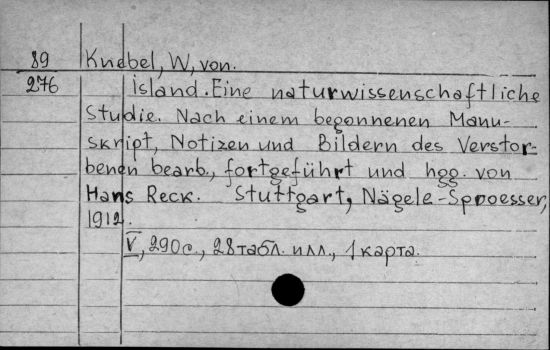 89 Knebel, W, von.
276 island. Eine naturwissenschaftliche
Studie. Nach einem begonnenen Manu-
skript, Notizen und Bildern des Verstor-
benen bearb., fortgeführt und hgg. von
Hans Reck. Stuttgart, Nägele-Sproesser,
1912.
V, 290 с., 28 табл. илл., 1 карта.